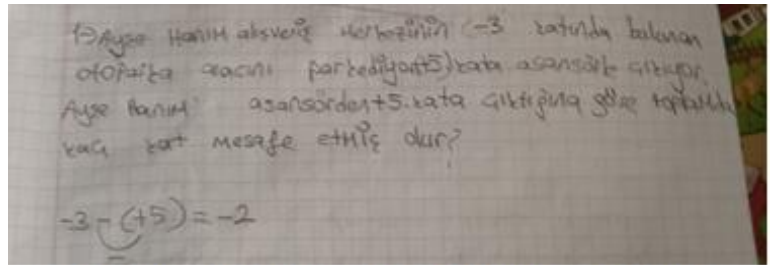 1-) Ayşe Hanım alışveriş merkezinin -3 katında bulunan
otoparka aracını parkediyor(+5) kata asansörle çıkıyor.
Ayşe Hanım asansörden +5. kata çıktığına göre toplamda
kaç kat mesafe etmiş dur?
-3 - (+5) = -2
-